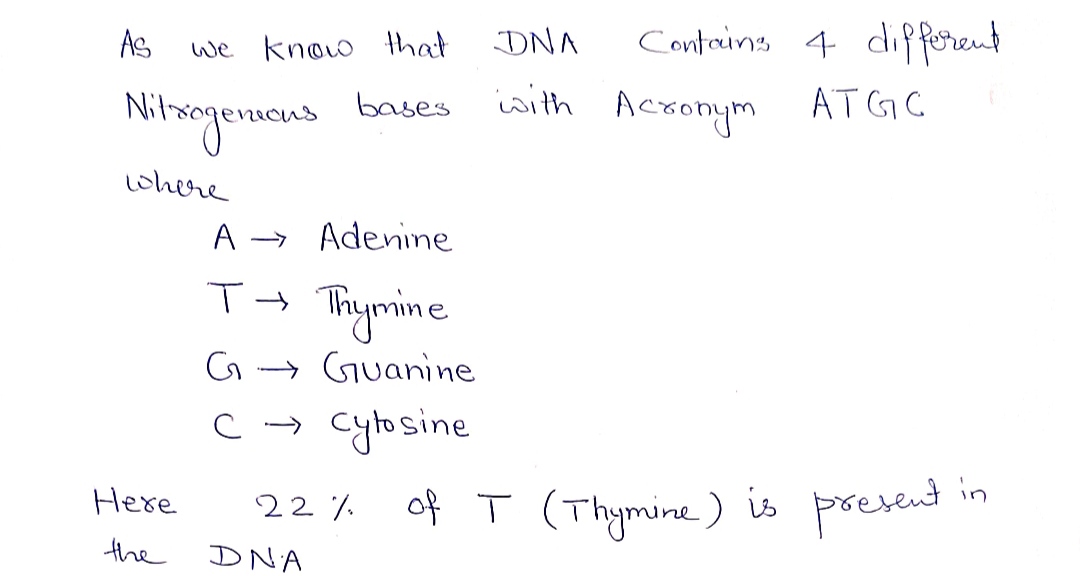 As we know that DNA Contains 4 different
Nitrogeneous bases with Acronym ATGC
where
A → Adenine
T → Thymine
G → Guanine
C → Cytosine
Here 22 % of T (Thymine) is present in
the DNA